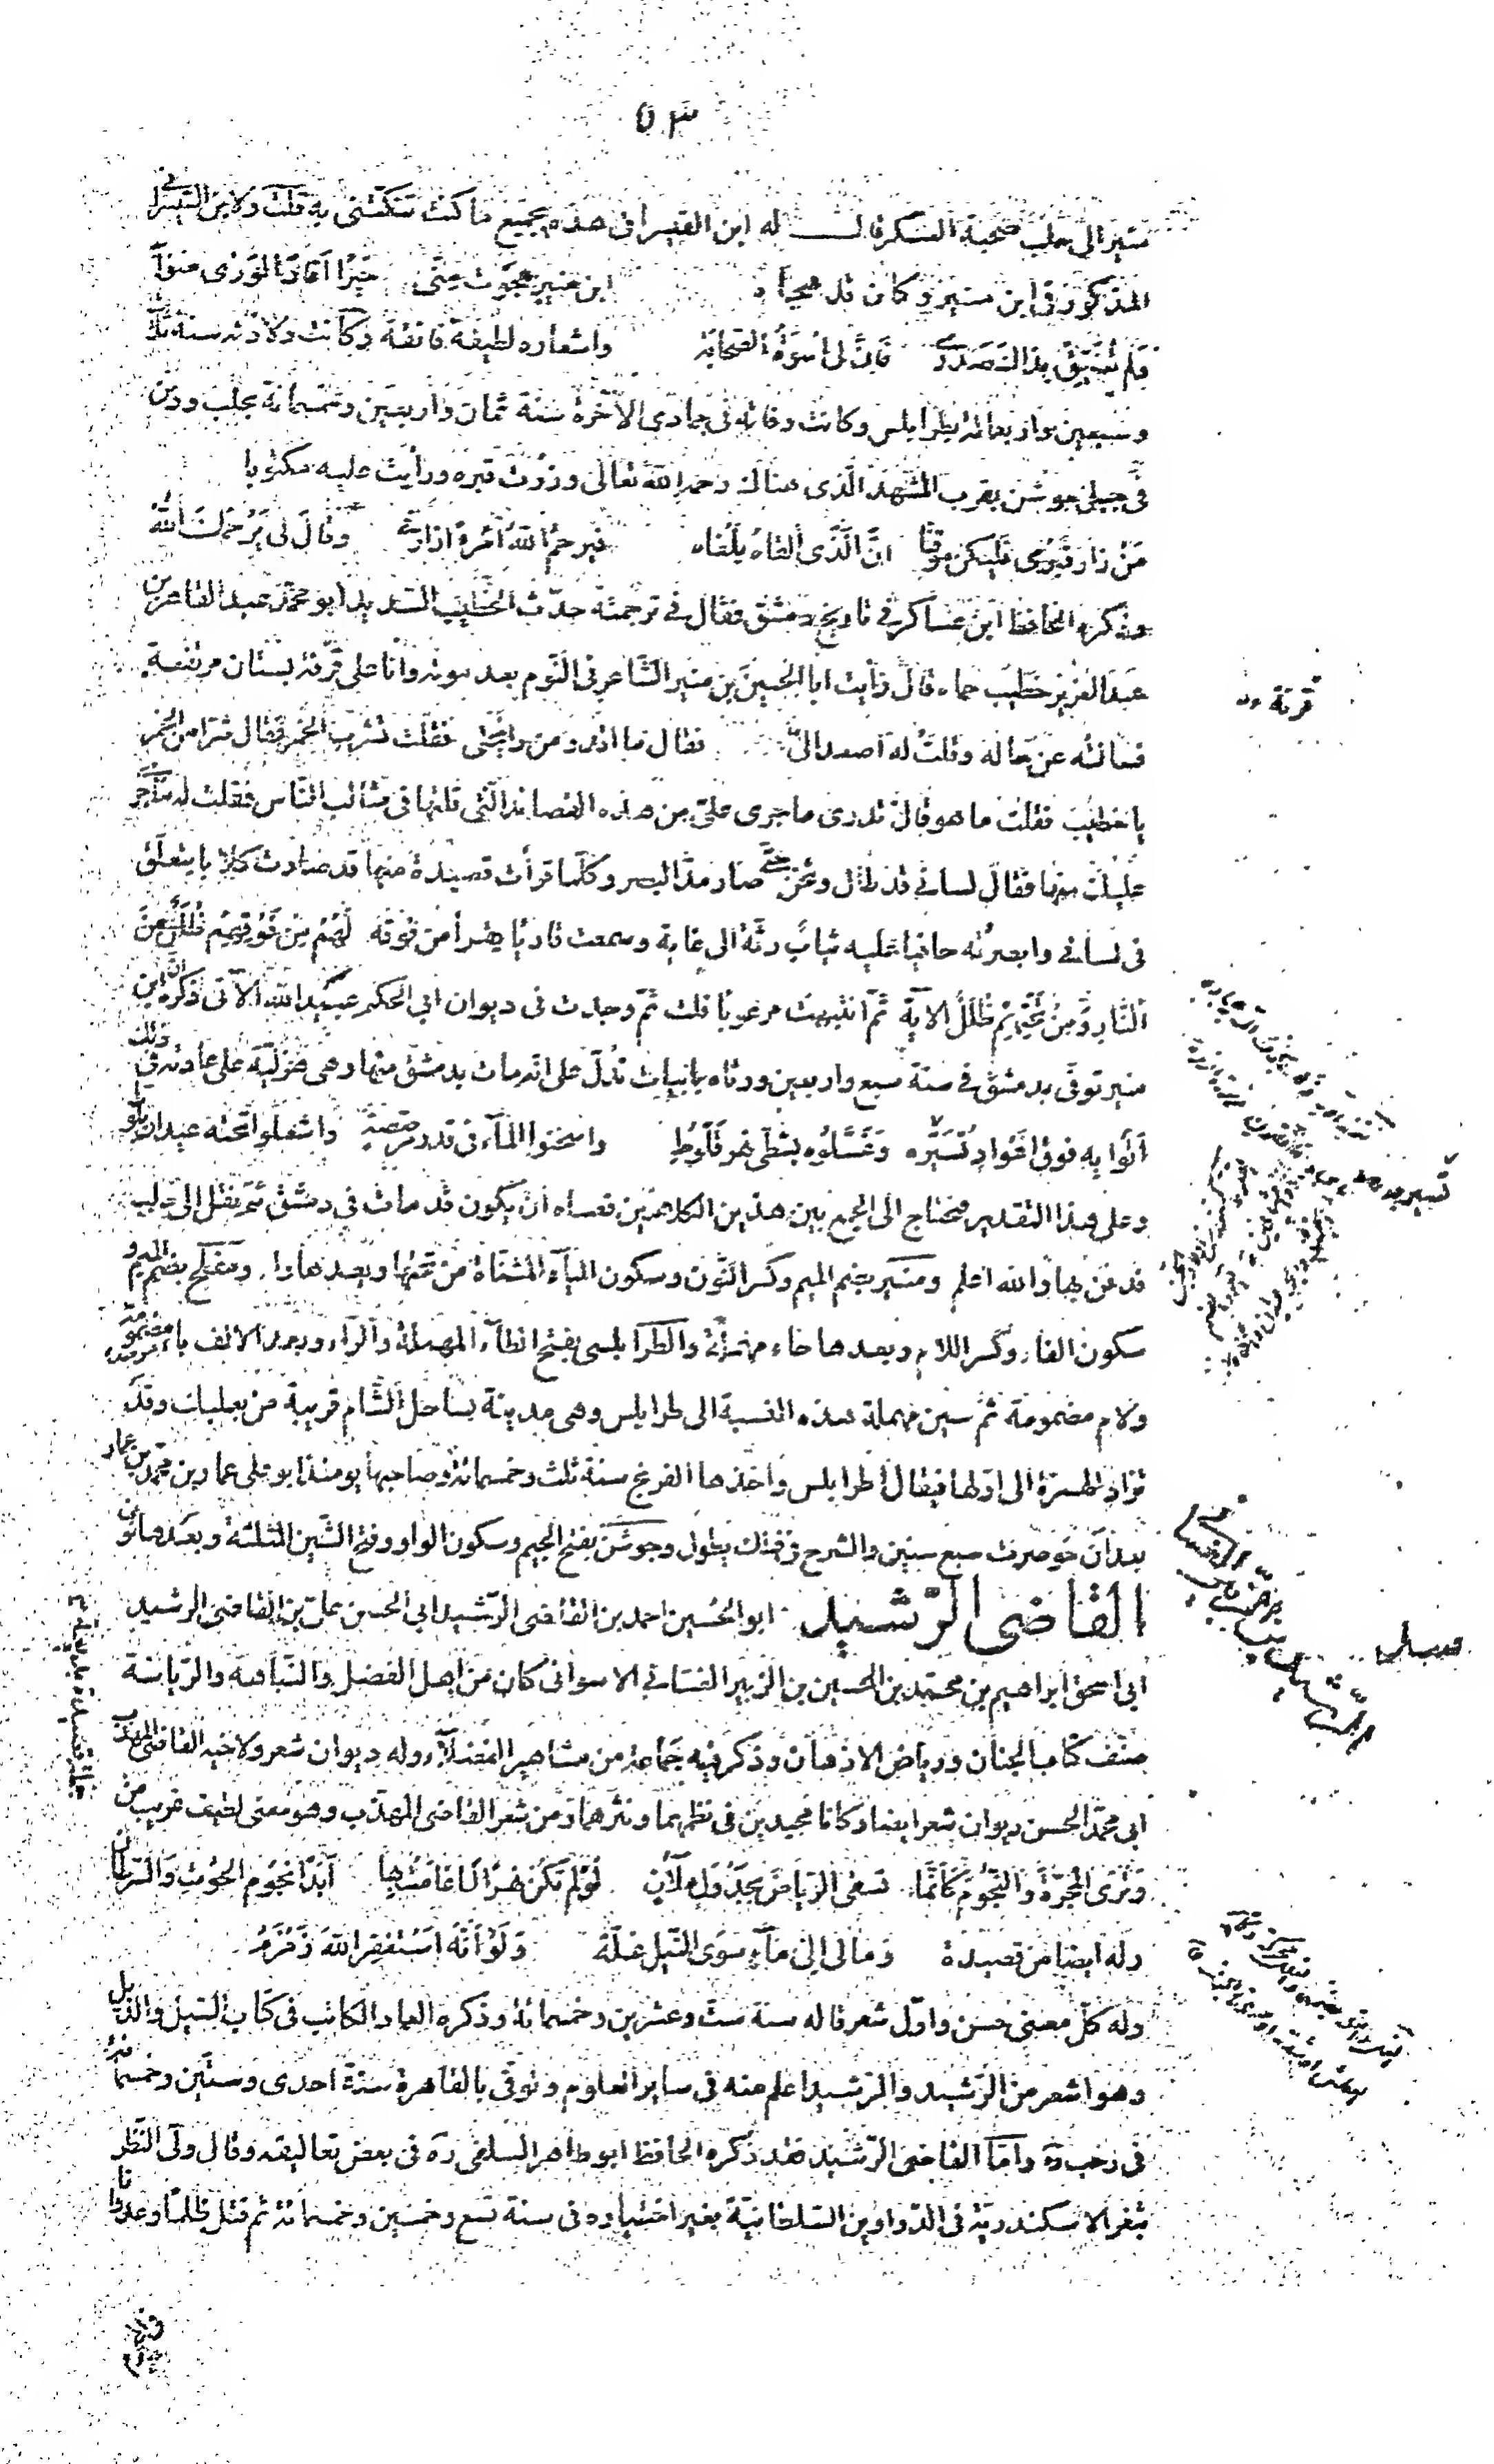 ٥٣
تسير الى حلب صحبة العسكر قال له ابن القيسرانى هذه بجميع ما كنت تنكتنى به قلت ولابن القيسرانى
المذكور فى ابن منير وكان قد هجاه ابن منير هجوت منّى خيرًا افاد الورى صوابه
ولم تضيّق بذاك صدرى فانّ لى اسوة الصحابة واشعاره لطيفة فائقة وكانت ولادته سنة ثلث
وسبعين واربعمائة بطرابلس وكانت وفاته فى جمادى الآخرة سنة ثمان واربعين وخمسمائة بحلب ودفن
فى جبل جوشن بقرب المشهد الّذى هناك رحمه الله تعالى وزرت قبره ورأيت عليه مكتوبا
من زار قبرى فليكن موقنا انّ الّذى القاه يلقاه فيرحم الله امرءً ازارنى وقال لى يرحمك الله
وذكره الحافظ ابن عساكر فى تاريخ دمشق فقال فى ترجمته حدّث الخطيب السديد ابو محمّد عبد القاهر بن
عبد العزيز خطيب حماه قال رأيت ابا الحسين بن منير الشاعر فى النّوم بعد موته وانا على قرنة بستان مرتفعة
فسألته عن حاله وقلت له اصعد الىّ فقال ما اقدر من رائحتى فقلت تشرب الخمر فقال شرّا من الخمر
يا خطيب فقلت ما هو قال تدرى ما جرى علىّ من هذه القصائد الّتى قلتها فى مثالب النّاس فقلت له ما جرى
عليك منها فقال لسانى قد طال وثخن حتّى صار مدّ البصر وكلّما قرأت قصيدة منها قد صارت كلابا يتعلّق
فى لسانى وابصرته حافيا عليه ثياب رثّة الى غاية وسمعت قارئا يقرأ من فوقه لهم من فوقهم ظلل من
النّار ومن تحتهم ظلل الآية ثمّ انتبهت مرعوبًا قلت ثمّ وجدت فى ديوان ابى الحكم عبيد الله الآتى ذكره انّ ابن
منير توفّى بدمشق فى سنة سبع واربعين ورثاه بابيات تدلّ على انّه مات بدمشق منها وهى هزليّة على عادته فى ذلك
اتوا به فوق اعواد تسيّره وغسّلوه بشطّى نهر قلّوط واسخنوا الماء فى قدر مرصّصة واشعلوا تحته عيدان بلّوط
وعلى هذا التقدير فيحتاج الى الجمع بين هذين الكلامين فعساه ان يكون قد مات فى دمشق ثمّ نقل الى حلب
فدفن بها والله اعلم ومنير بضم الميم وكسر النّون وسكون الياء المثناة من تحتها وبعدها راء ومفلح بضم الميم و
سكون الفاء وكسر اللام وبعدها حاء مهملة والطرابلسى بفتح الطاء المهملة والراء وبعد الالف باء موحّدة مضمومة
ولام مضمومة ثمّ سين مهملة هذه النسبة الى طرابلس وهى مدينة بساحل الشام قريبة من بعلبك وقد
تزاد الهمزة الى اولها فيقال اطرابلس واخذها الفرنج سنة ثلث وخمسمائة وصاحبها يومئذ ابو على عمار بن محمّد بن عمار
بعد ان حوصرت سبع سنين والشرح فى ذلك يطول وجوشن بفتح الجيم وسكون الواو وفتح الشّين المثلثة وبعدها نون
القاضى الرّشيد ابو الحسين احمد بن القاضى الرّشيد ابى الحسن علىّ بن القاضى الرشيد
ابى اسحق ابراهيم بن محمّد بن الحسين بن الزبير الغسانى الاسوانى كان من اهل الفضل والنّباهة والرّياسة
صنّف كتاب الجنان ورياض الاذهان وذكر فيه جماعة من مشاهير الفضلاء وله ديوان شعر ولاخيه القاضى المهذّب
ابى محمّد الحسن ديوان شعر ايضا وكانا مجيدين فى نظمهما ونثرهما ومن شعر القاضى المهذّب وهو معنى لطيف غريب من
وترى المجرّة والنجوم كانّما تسقى الرّياض بجدول ملآن لو لم تكن نهرًا لما عامت بها ابدًا نجوم الحوت والسّرطان
وله ايضا من قصيدة ومالى الى ماءٍ سوى النّيل غلّة ولو انّه استغفر الله زمزم
وله كلّ معنى حسن واوّل شعر قاله سنة ستّ وعشرين وخمسمائة وذكره العماد الكاتب فى كتاب السّيل والذّيل
وهو اشعر من الرّشيد والرّشيد اعلم منه فى ساير العلوم وتوفّى بالقاهرة سنة احدى وستّين وخمسمائة
فى رجب ره وامّا القاضى الرّشيد فقد ذكره الحافظ ابو طاهر السلفى ره فى بعض تعاليقه وقال ولّى النظر
بثغر الاسكندريّة فى الدّواوين السّلطانيّة بغير اختياره فى سنة تسع وخمسين وخمسمائة ثم قتل ظلمًا وعدوانا
قرنة